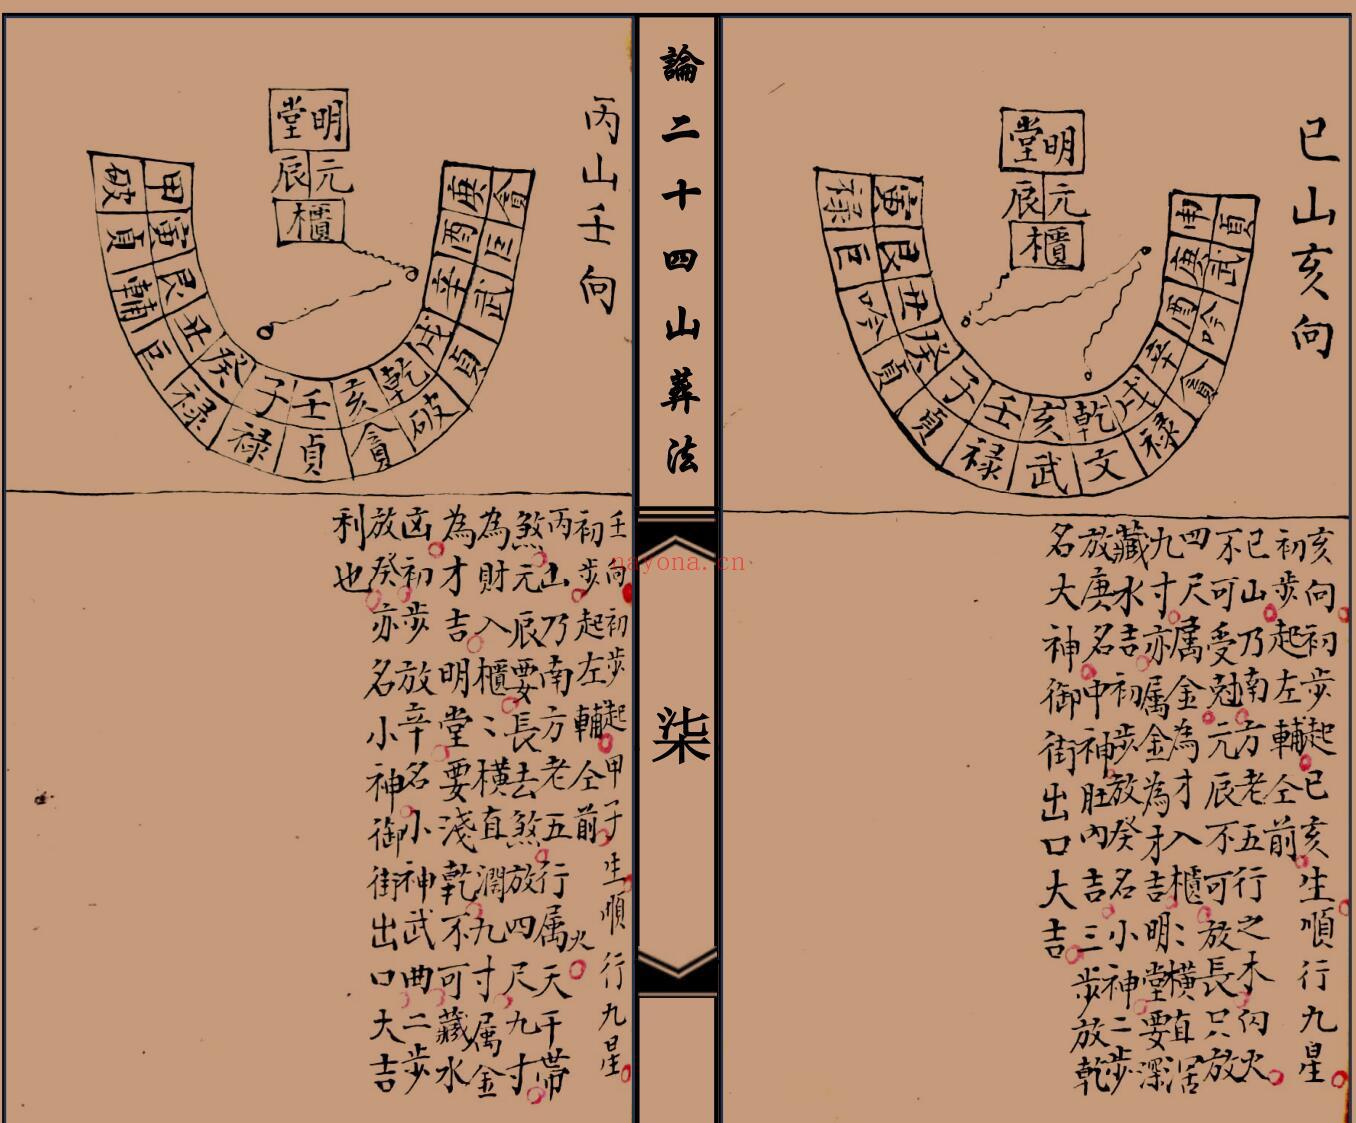 巳山亥向
明堂
元辰
櫃
寅艮丑癸子壬亥乾戌辛酉庚申
祿巨吟貞貞祿武文祿貪吟武貞
亥向初步起巳亥生順行九星
初步起左輔仝前
巳山乃南方老五行之木向火
不可受尅元辰不可放長只放
四尺属金為才入櫃〻橫直濶
九寸亦属金為才吉明堂要深
藏水吉初步放癸名小神二步
放庚名中神旺內吉三步放乾
名大神御街出口大吉
論二十四山葬法
柒
丙山壬向
明堂
元辰
櫃
甲寅艮丑癸子壬亥乾戌辛酉庚
破貞輔巨祿祿貞貪破貞武巨貪
壬向初步起甲子生順行九星
初步起左輔仝前
丙山乃南方老五行属火天干帶
煞元辰要長去煞放四尺九寸
為財入櫃〻橫直濶九寸属金
為才吉明堂要淺乾不可藏水
凶初步放辛名小神武曲二步
放癸亦名小神御街出口大吉
利也
nayona.cn